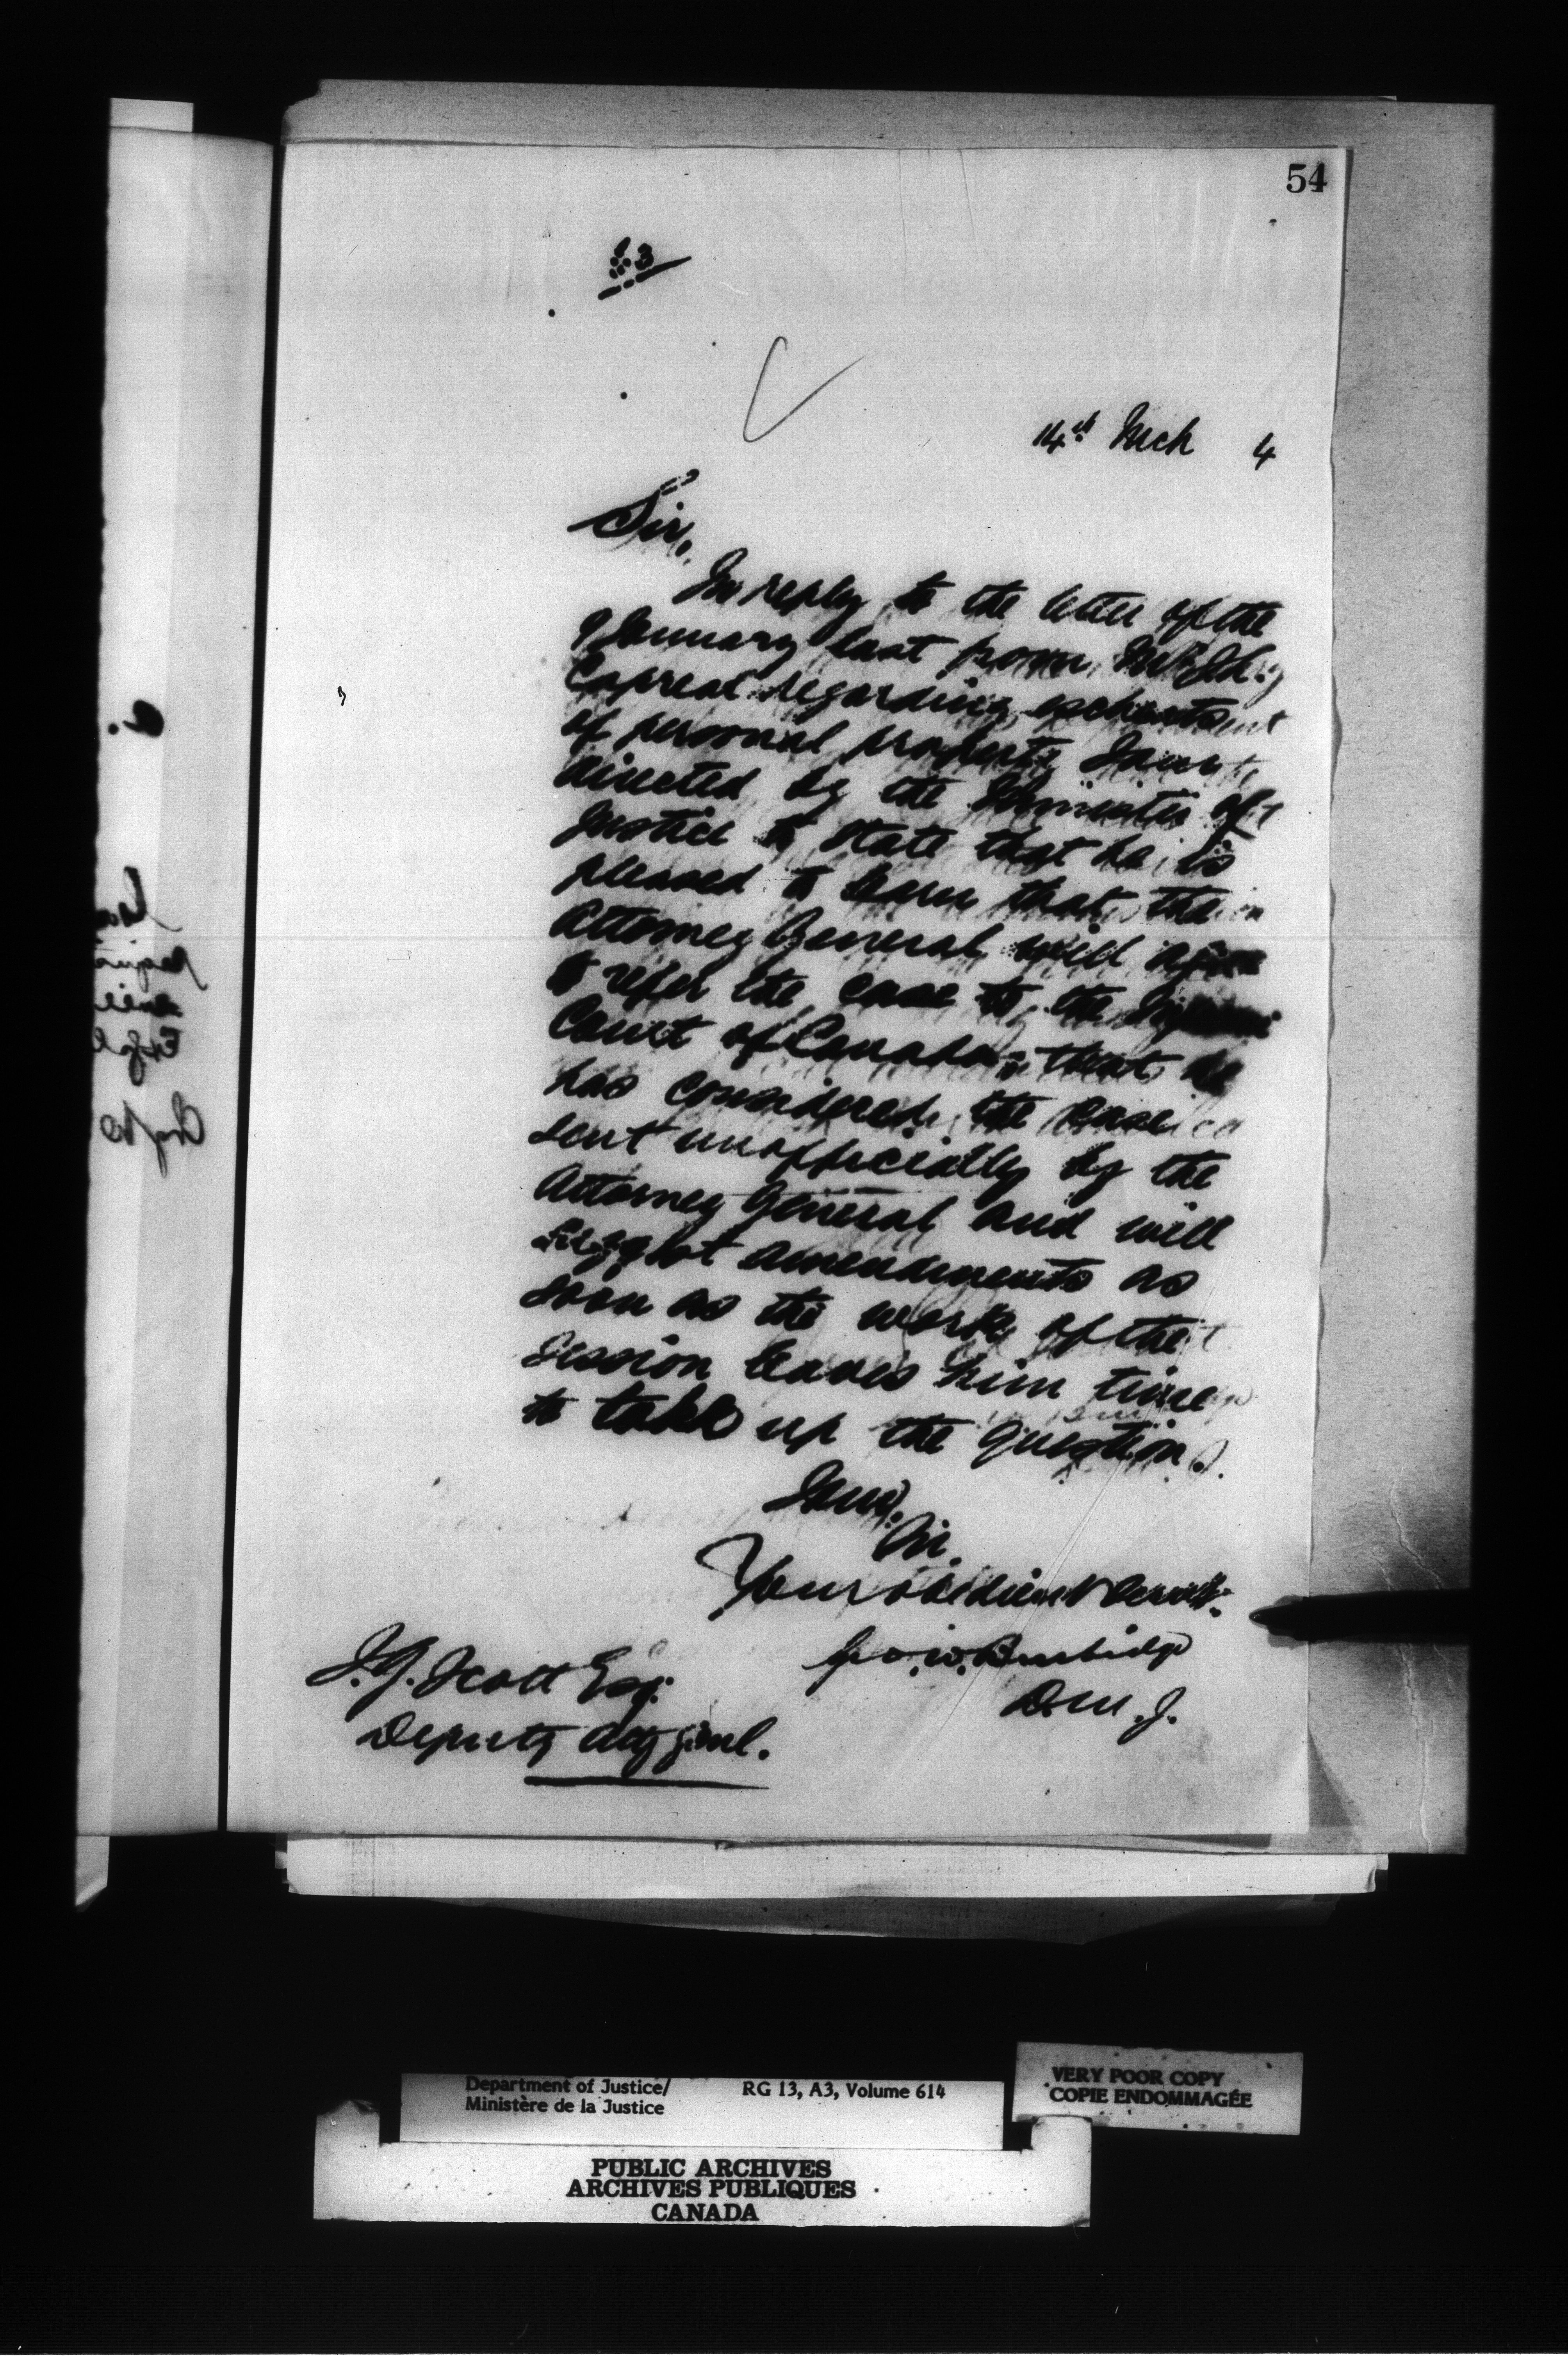 54
14th Mch 4
Sir,
In reply to the letter of the
9 January last from Mr
Capreol regarding escheats
of personal property I am
directed by the Minister of
Justice to state that he is
pleased to learn that the
Attorney General will agree
to refer the case to the Supreme
Court of Canada; that he
has considered the case
sent unofficially by the
Attorney General and will
suggest amendments as
soon as the work of the
session leaves him time
to take up the question.
I am,
Sir,
Your obedient Servt.
Geo. W. Burbidge
D.M.J.
J.G. Scott Esq.
Deputy Atty Genl.
Department of Justice/
Ministère de la Justice
RG 13, A3, Volume 614
VERY POOR COPY
COPIE ENDOMMAGÉE
PUBLIC ARCHIVES
ARCHIVES PUBLIQUES
CANADA